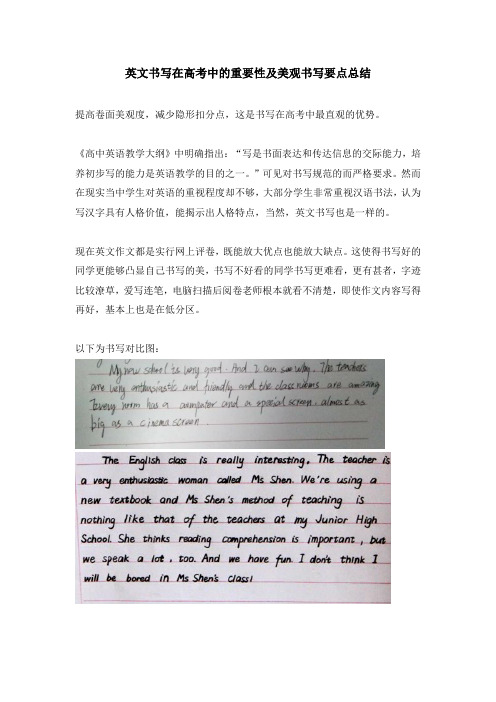 英文书写在高考中的重要性及美观书写要点总结
提高卷面美观度，减少隐形扣分点，这是书写在高考中最直观的优势。
《高中英语教学大纲》中明确指出：“写是书面表达和传达信息的交际能力，培
养初步写的能力是英语教学的目的之一。”可见对书写规范的而严格要求。然而
在现实当中学生对英语的重视程度却不够，大部分学生非常重视汉语书法，认为
写汉字具有人格价值，能揭示出人格特点，当然，英文书写也是一样的。
现在英文作文都是实行网上评卷，既能放大优点也能放大缺点。这使得书写好的
同学更能够凸显自己书写的美，书写不好看的同学书写更难看，更有甚者，字迹
比较潦草，爱写连笔，电脑扫描后阅卷老师根本就看不清楚，即使作文内容写得
再好，基本上也是在低分区。
以下为书写对比图：
My new school is very good. And I can see why. The teachers
are very enthusiastic and friendly and the classrooms are amazing
Every room has a computer and a special screen. almost as
big as a cinema screen.
The English class is really interesting. The teacher is
a very enthusiastic woman called Ms Shen. We're using a
new textbook and Ms Shen's method of teaching is
nothing like that of the teachers at my Junior High
School. She thinks reading comprehension is important, but
we speak a lot, too. And we have fun. I don't think I
will be bored in Ms Shen's class!